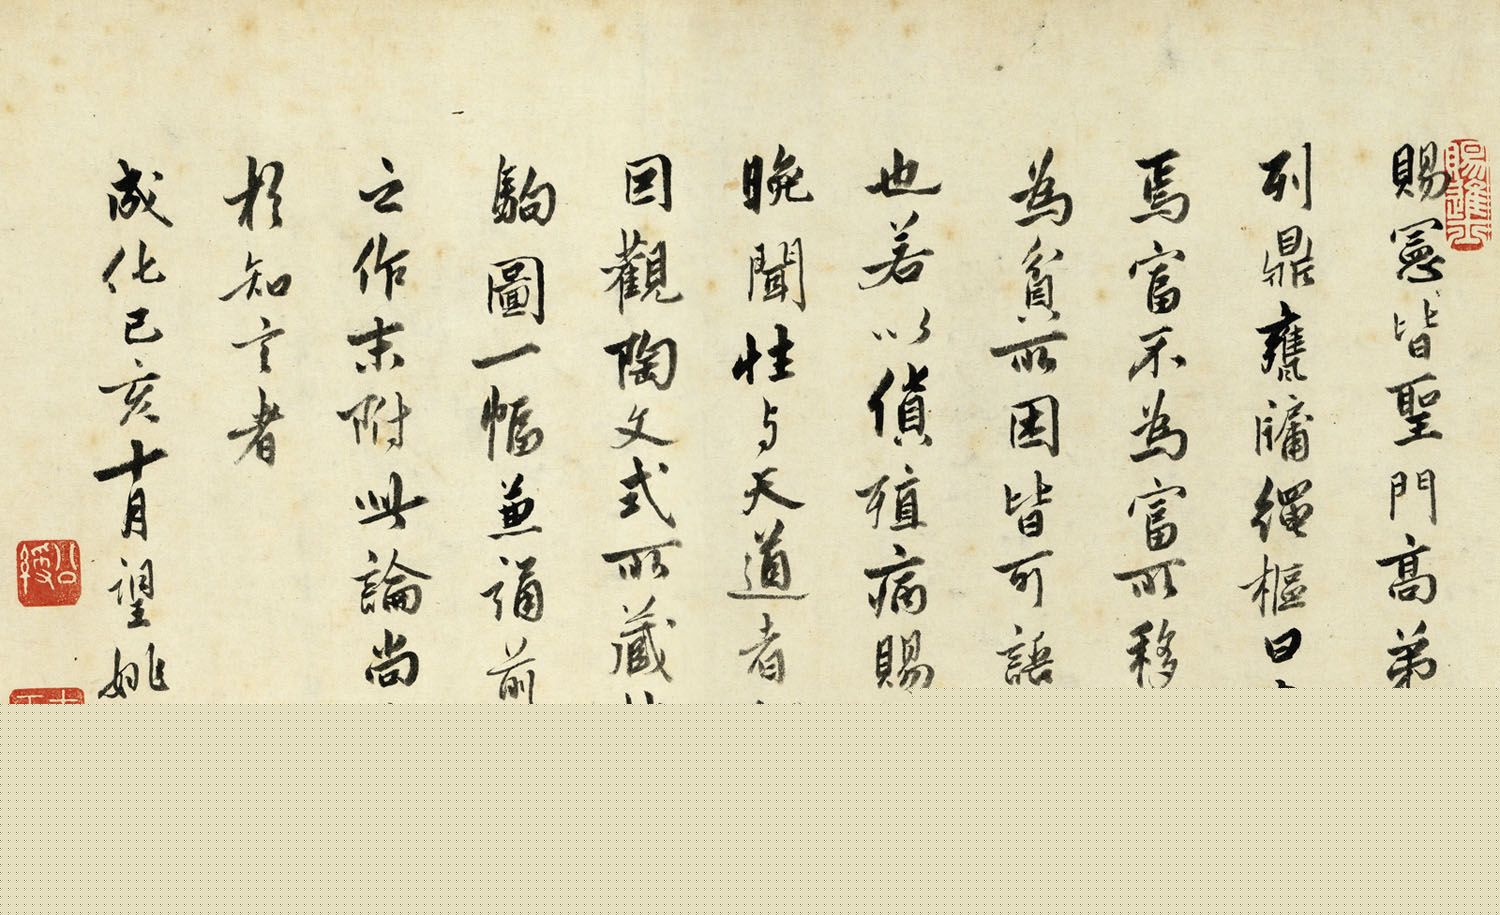 賜憲皆聖門高弟
列鼎甕牖繩樞曰
焉富不為富所移
為貧所困皆可語
也若以貨殖病賜
晚聞性与天道者
因觀陶文式所藏
駒圖一幅兼誦前
之作末附此論尚
於知言者
成化己亥十月望姚
賜進士
公綬